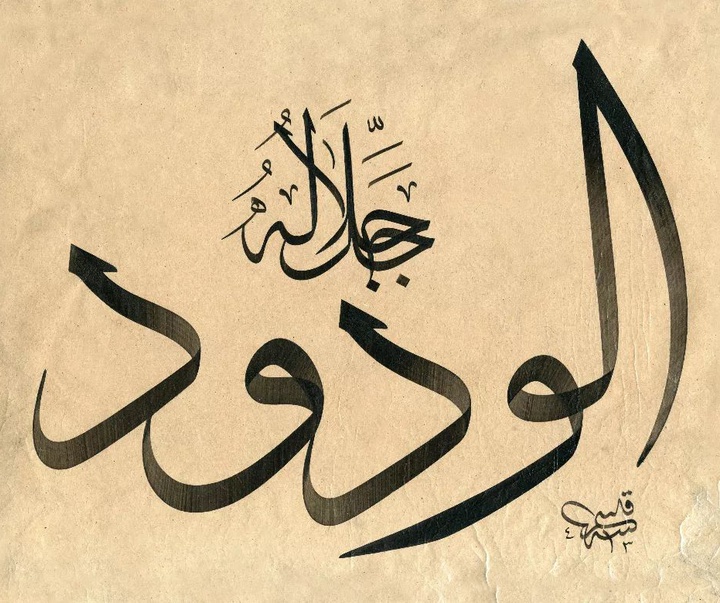 الودود
جَلَّ جَلَالُهُ